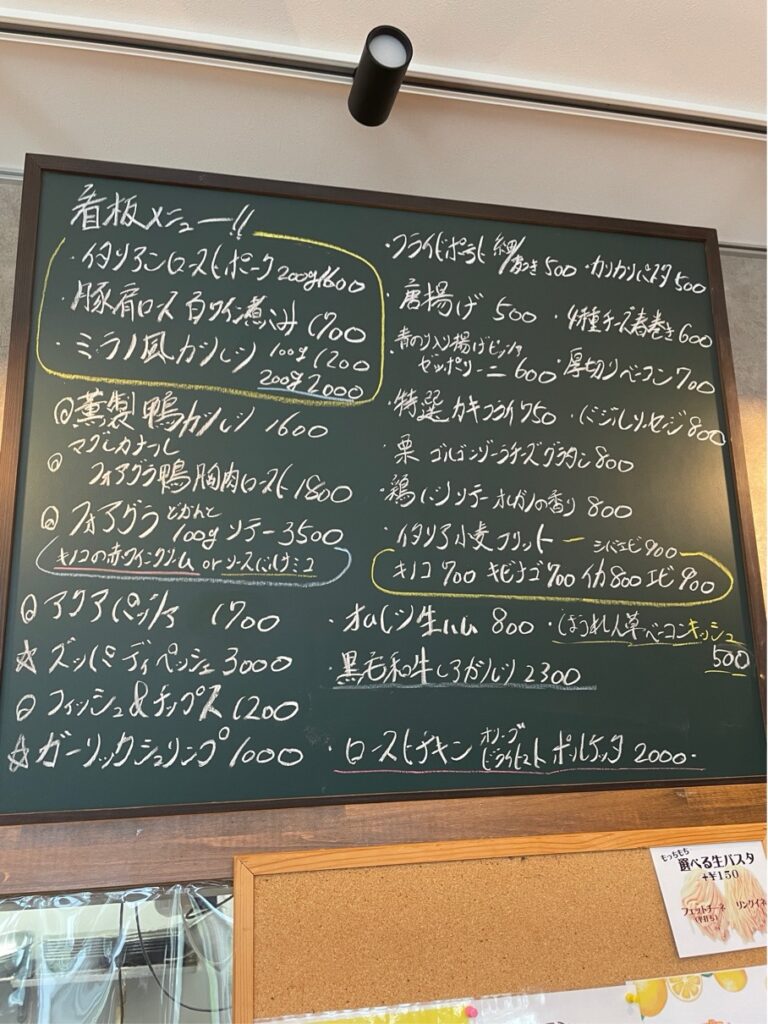 看板メニュー!!
・イタリアンローストポーク 200g 1600
・豚肩ロース 白ワイン煮込み 1700
・ミラノ風カツレツ 100g 1200
200g 2000
◎燻製鴨カツレツ 1600
◎マグレカナール
フォアグラ鴨胸肉ロースト 1800
◎フォアグラ どかんと 100g ソテー 3500
キノコの赤ワインクリーム or ソースバルサミコ
◎アクアパッツァ 1700
☆ズッパ ディ ペッシェ 3000
◎フィッシュ&チップス 1200
☆ガーリックシュリンプ 1000
・フライドポテト 細/皮つき 500
・カリカリパスタ 500
・唐揚げ 500
・4種チーズ春巻き 600
・青のり入り揚げピッツァ
ゼッポリーニ 600
・厚切りベーコン 700
・特選カキフライ 750
・バジルソーセージ 800
・栗 ゴルゴンゾーラチーズグラタン 800
・鶏レバーソテー オレガノの香り 800
・イタリア小麦フリット ー シバエビ 900
キノコ 700 キビナゴ 700 イカ 800 エビ 900
・オムレツ生ハム 800
・ほうれん草ベーコンキッシュ
500
・黒毛和牛しろカツレツ 2300
・ローストチキン オリーブ ドライトマト ポルケッタ 2000-
もっちもち
選べる生パスタ
+¥150
フェットチーネ
(平打ち)
リングイネ